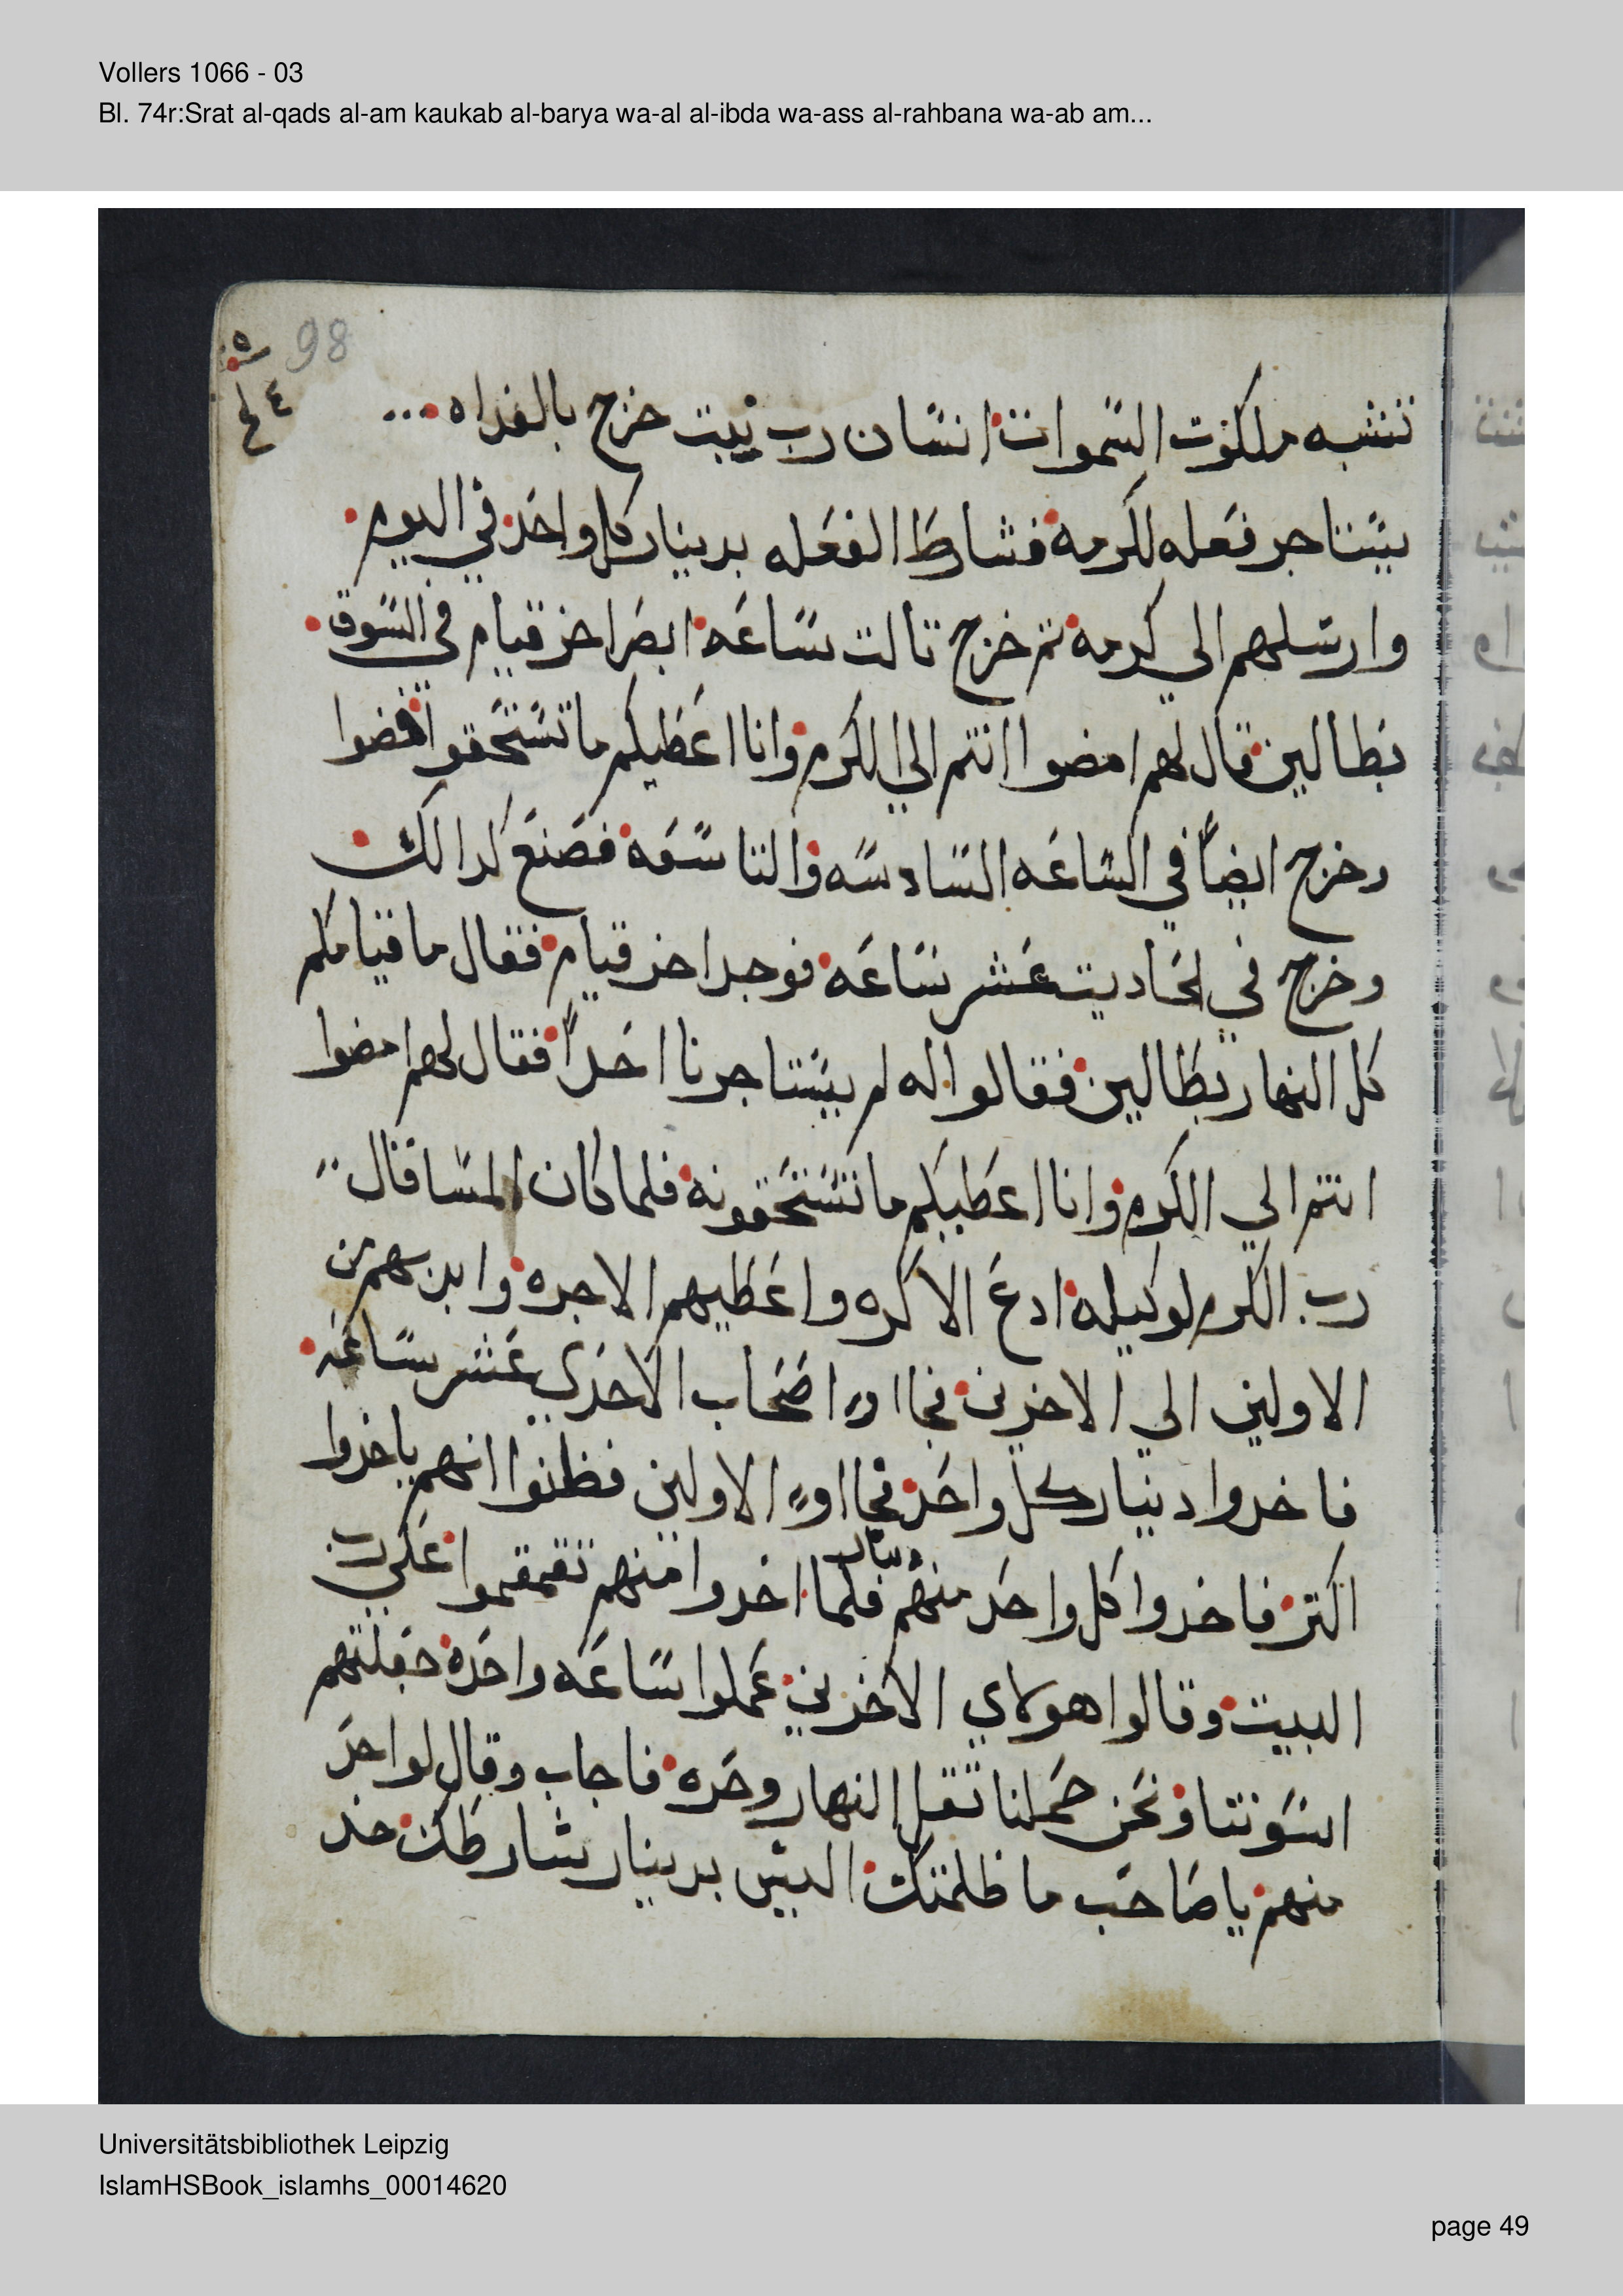 Vollers 1066 - 03
Bl. 74r:Srat al-qads al-am kaukab al-barya wa-al al-ibda wa-ass al-rahbana wa-ab am...
98
تتشبه ملكوت السموات انسان رب بيت خرج بالغداه
يستاجر فعله لكرمه فشارط الفعله بدينار كل واحد في اليوم
وارسلهم الي كرمه تم خرج تالت ساعه ابصر اخر قيام في السوق
بطالين قال لهم امضوا انتم الي الكرم وانا اعطيكم ما تستحقوا فمضوا
وخرج ايضاً في الساعه السادسه والتاسعه فصنع كدالك
وخرج في لحاديت عشر ساعه فوجد اخر قيام فقال ما قيامكم
كل النهار بطالين فقالوا له لم يستاجرنا احداً فقال لهم امضوا
انتم الي الكرم وانا اعطيكم ما تستحقونه فلما كان المسا قال
رب الكرم لوكيله ادع الاكره واعطيهم الاجره وابد بهم من
الاولين الي الاخرين فجااو اصحاب الاحدي عشر ساعه
فاخدوا دينار كل واحد فجااو الاولين فظنوا انهم ياخدوا
اكتر فاخدوا كل واحد منهم دينار فلما اخدوا منهم تقمقموا علي رب
البيت وقالوا هولاي الاخرين عملوا ساعه واحده جعلتهم
اسوتنا ونحن حملنا تقل النهار وحره فاجاب وقال لواحد
منهم يا صاحب ما ظلمتك اليس بدينار شارطك خد
Universitätsbibliothek Leipzig
IslamHSBook_islamhs_00014620
page 49